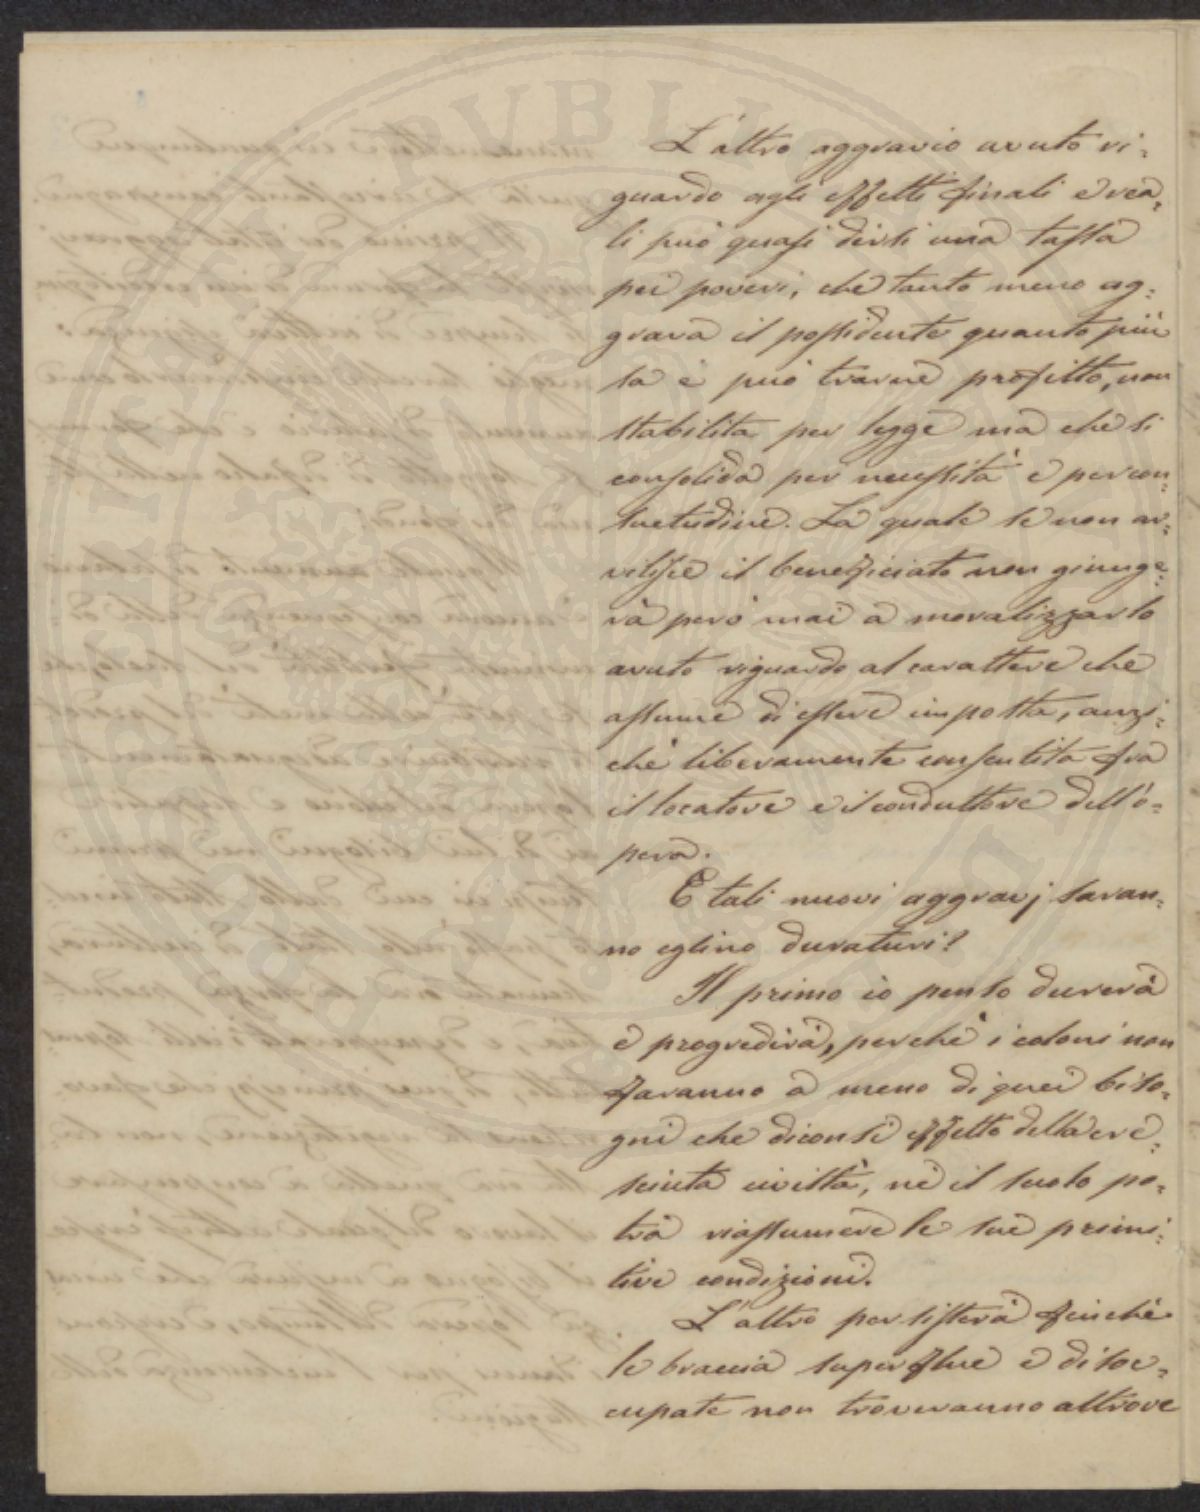 L'altro aggravio avuto ri=
guardo agli effetti finali e rea=
li può quasi dirsi una tassa
pei poveri, che tanto meno ag=
grava il possidente quanto più
sa e può trarne profitto, non
stabilita per legge ma che si
consolida per necessità e per con=
suetudine. La quale se non av=
vilisce il beneficiato non giunge=
rà però mai a moralizzarlo
avuto riguardo al carattere che
assume di essere imposta, anzi=
chè liberamente consentita fra
il locatore e il conduttore dell'o=
pera.
E tali nuovi aggravj saran=
no eglino duraturi?
Il primo io penso durerà
e progredirà, perchè i coloni non
faranno a meno di quei biso=
gni che diconsi effetto della cre=
sciuta civiltà, nè il suolo po=
trà riassumere le sue primi=
tive condizioni.
L'altro persisterà finchè
le braccia superflue e disoc=
cupate non troveranno altrove